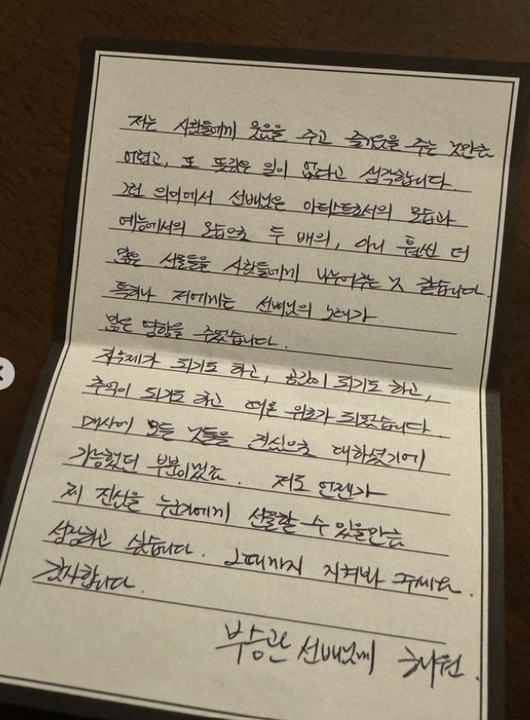 저는 사람들에게 웃음을 주고 즐거움을 주는 것만큼
어렵고, 또 뜻깊은 일이 없다고 생각합니다
그런 의미에서 선배님은 아티스트로서의 모습과
예능에서의 모습으로 두 배의, 아니 훨씬 더
많은 선물들을 사람들에게 나누어주는 것 같습니다.
특히나 저에게는 선배님의 노래가
많은 영향을 주었습니다.
자유제가 되기도 하고, 공감이 되기도 하고,
추억이 되기도 하고 때론 위로가 되었습니다.
매사에 모든 것들을 진심으로 대하셨기에
가능했던 부분이겠죠. 저도 언젠가
제 진심을 누군가에게 선물할 수 있을만큼
성장하고 싶습니다. 그때까지 지켜봐 주세요.
감사합니다.
부승관 선배님께